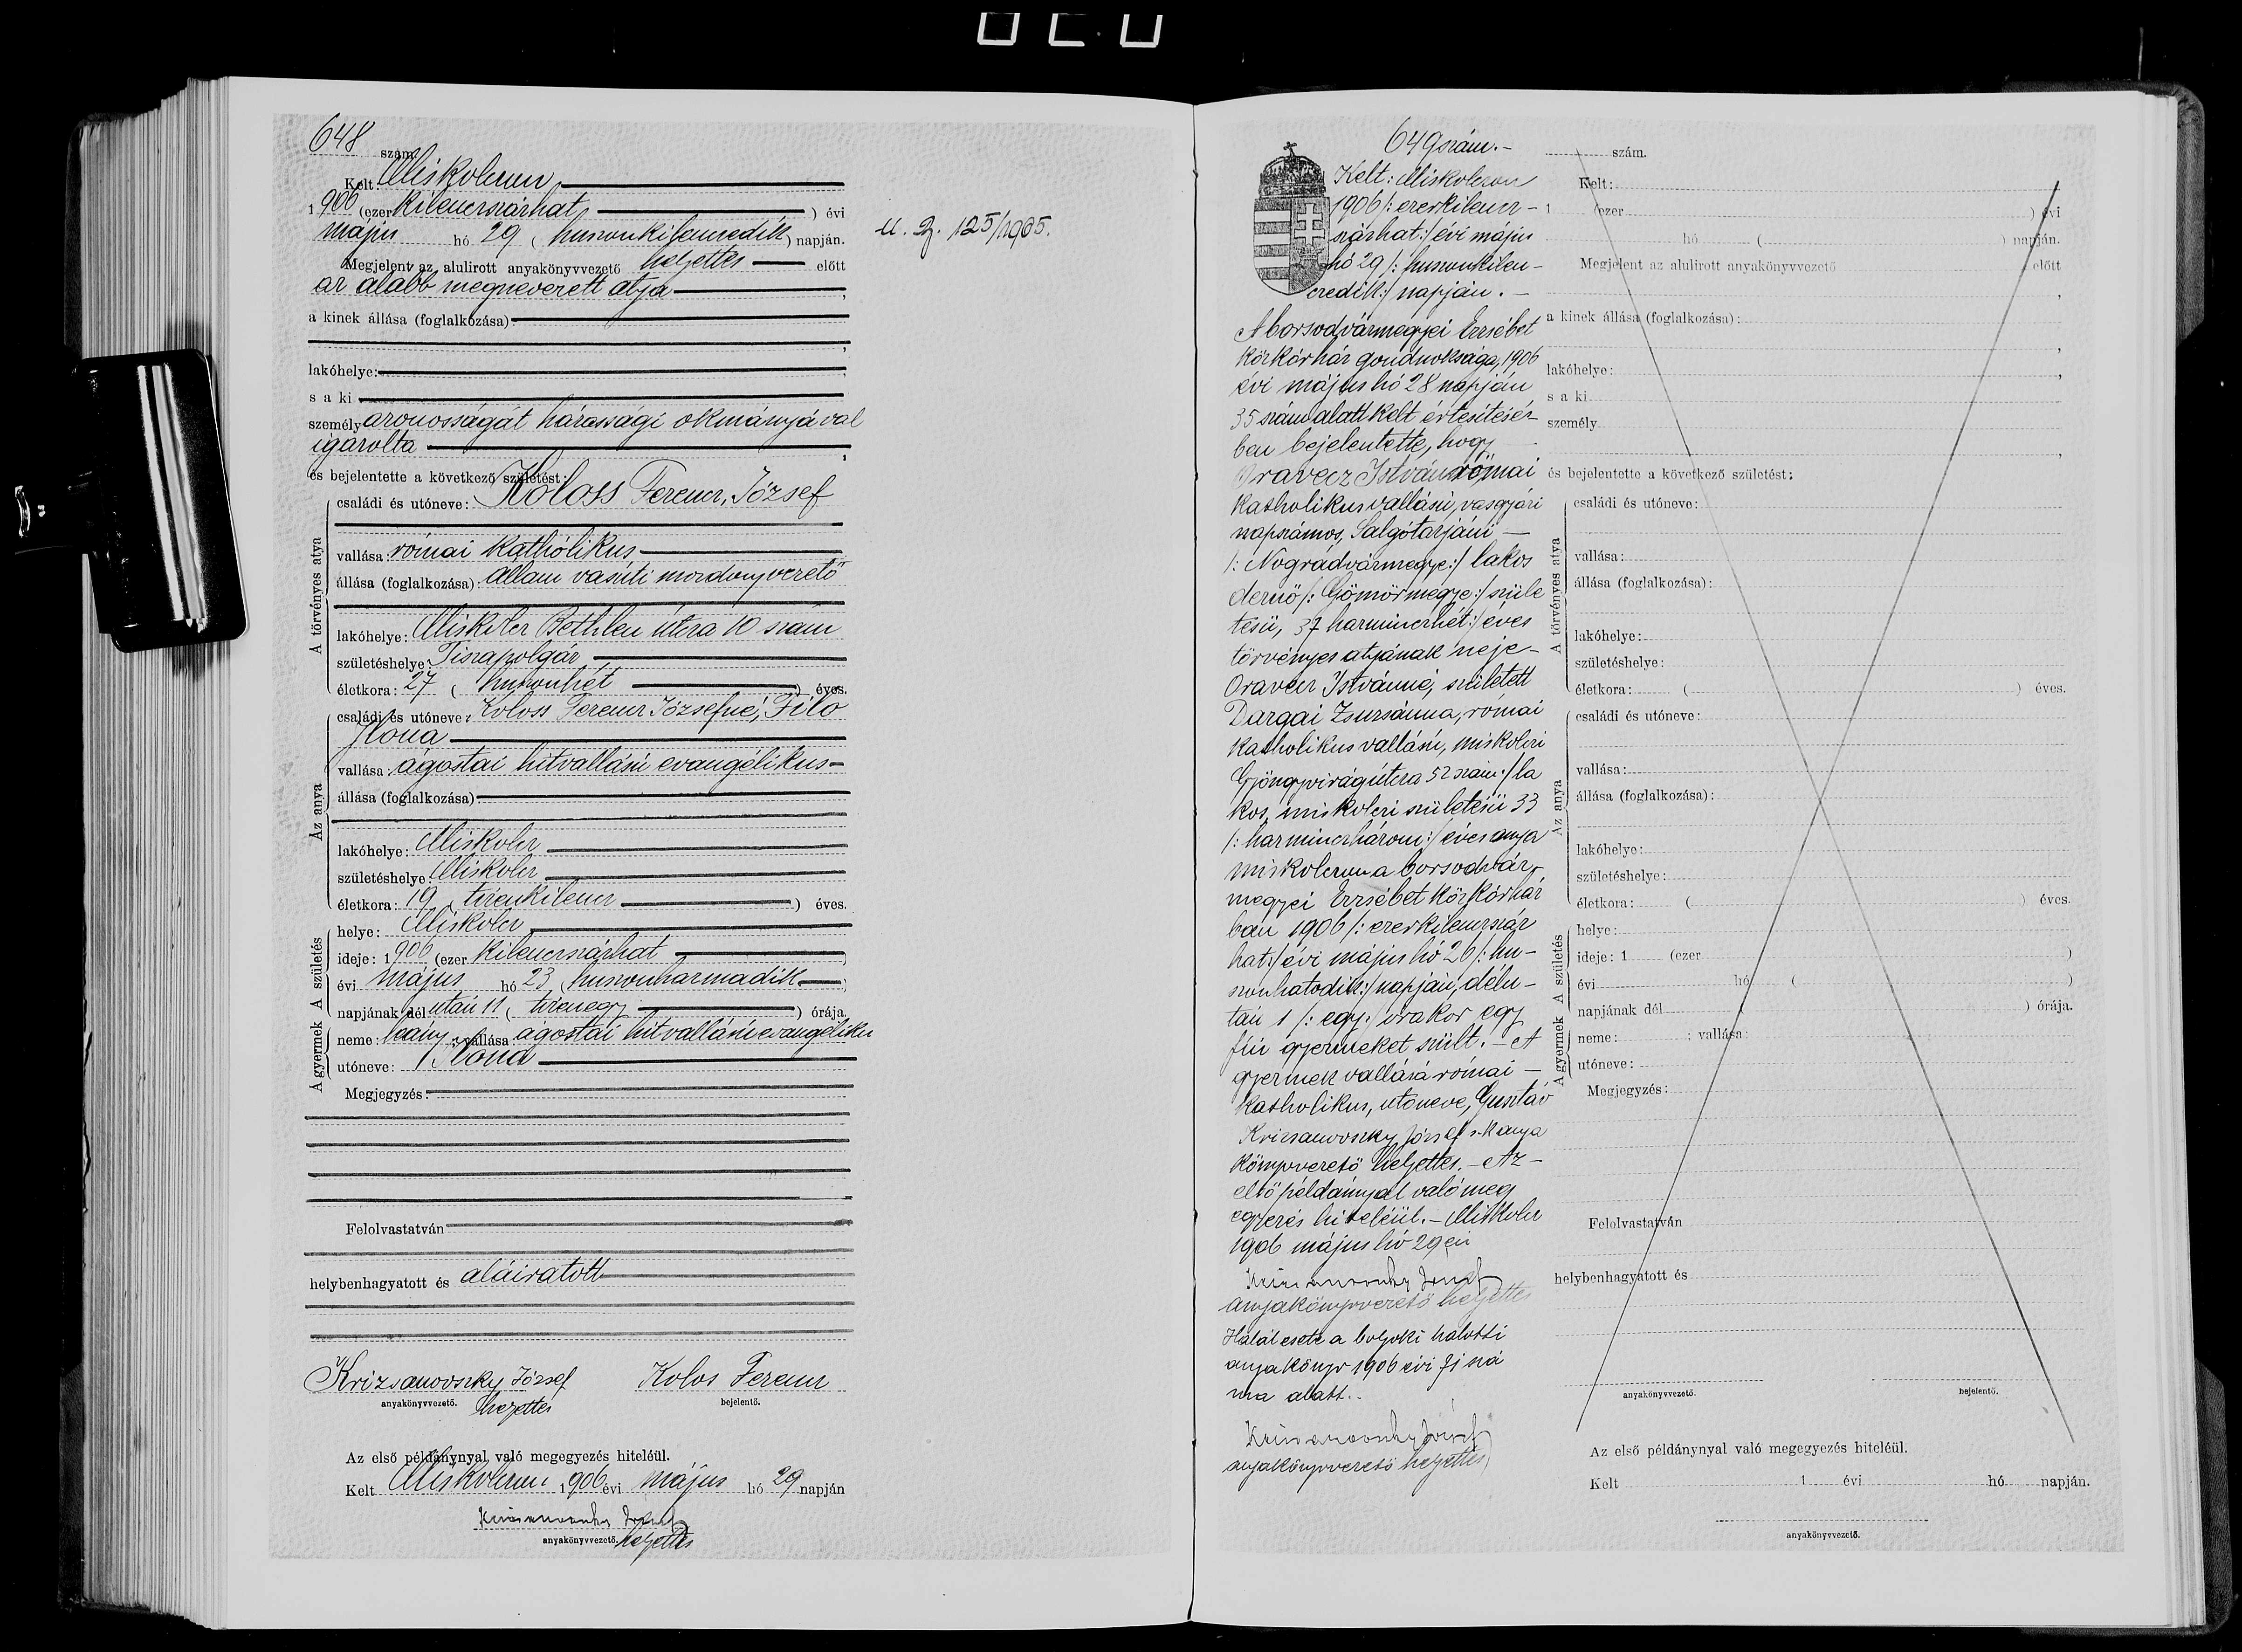 648 szám.
Kelt: Miskolczon
1906 (ezer kilenczszázhat) évi
május hó 29 (huszonkilenczedik) napján.
M. Sz. 125/1905.
Megjelent az alulirott anyakönyvvezető helyettes előtt
az alább megnevezett atya,
a kinek állása (foglalkozása):
lakóhelye:
s a ki
személyazonosságát házassági okmányával
igazolta,
és bejelentette a következő születést:
A törvényes atya
családi és utóneve: Koloss Ferencz, József
vallása: római katholikus
állása (foglalkozása): állam vasúti mozdonyvezető
lakóhelye: Miskolcz Bethlen útcza 10 szám
születéshelye: Tiszapolgár
életkora: 27 (huszonhét) éves.
Az anya
családi és utóneve: Koloss Ferencz Józsefné, Filo
Ilona
vallása: ágostai hitvallású evangélikus
állása (foglalkozása):
lakóhelye: Miskolcz
születéshelye: Miskolcz
életkora: 19 (tizenkilencz) éves.
A születés
helye: Miskolcz
ideje: 1906 (ezer kilenczszázhat)
évi május hó 23 (huszonharmadik)
napjának dél után 11 (tizenegy) órája.
A gyermek
neme: leány; vallása: ágostai hitvallású evangélikus
utóneve: Ilona
Megjegyzés:
Felolvastatván
helybenhagyatott és aláiratott
Krizsanovszky József
anyakönyvvezető. helyettes
Kolos Ferencz
bejelentő.
Az első példánynyal való megegyezés hiteléül.
Kelt Miskolczon 1906 évi május hó 29 napján
Krizsanovszky József
anyakönyvvezető. helyettes
649 szám.-
Kelt: Miskolczon
1906 /: ezerkilencz-
százhat:/ évi május
hó 29 /: huszonkilen-
czedik:/ napján.-
A borsodvármegyei Erzsébet
közkórház gondnoksága, 1906
évi május hó 28 napján
35 szám alatt kelt értesítésé-
ben bejelentette, hogy
Oravecz István római
katholikus vallású, vasgyári
napszámos, Salgótarjáni -
/: Nográdvármegye:/ lakos
dernő /: Gömörmegye:/ szüle
tésü, 37 harminczhét:/ éves
törvényes atyának neje-
Oravecz Istvánné, született
Dargai Zsuzsánna, római
katholikus vallású, miskolczi
Gyöngyvirágútcza 52 szám:/ la
kos, miskolczi születésü 33
/: harminczhárom:/ éves anya
Miskolczon a borsodvár-
megyei Erzsébet közkórház
ban 1906 /: ezerkilenczszáz
hat:/ évi május hó 26 /: hu-
szonhatodik:/ napján, délu-
tán 1 /: egy:/ órakor egy
fiú gyermeket szült. - A
gyermek vallása római -
katholikus, utóneve, Gusztáv
Krizsanovszky József s.k. anya
könyvvezető helyettes. - Az -
első példánynyal való meg
egyezés hiteléül. - Miskolcz
1906 május hó 29 én
Krizsanovszky József
anyakönyvvezető helyettes
Halál esete a bolyoki halotti
anyakönyv 1906 évi 71 szá
ma alatt.-
Krizsanovszky József
anyakönyvvezető helyettes
szám.
Kelt:
1 (ezer ) évi
hó ( ) napján.
Megjelent az alulirott anyakönyvvezető előtt
,
a kinek állása (foglalkozása):
,
lakóhelye: ,
s a ki
személy
,
és bejelentette a következő születést:
A törvényes atya
családi és utóneve:
vallása:
állása (foglalkozása):
lakóhelye:
születéshelye:
életkora: ( ) éves.
Az anya
családi és utóneve:
vallása:
állása (foglalkozása):
lakóhelye:
születéshelye:
életkora: ( ) éves.
A születés
helye:
ideje: 1 (ezer )
évi hó ( )
napjának dél ) órája.
A gyermek
neme: ; vallása:
utóneve:
Megjegyzés:
Felolvastatván
helybenhagyatott és
anyakönyvvezető.
bejelentő.
Az első példánynyal való megegyezés hiteléül.
Kelt 1 évi hó napján.
anyakönyvvezető.